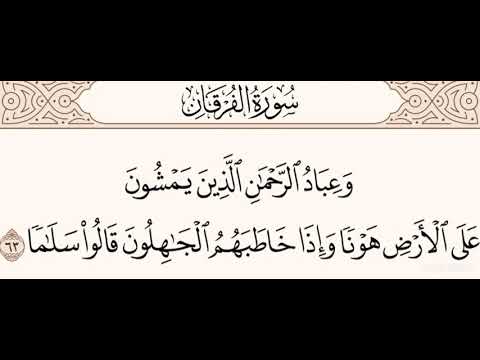 سُورَةُ الفُرْقَانِ
وَعِبَادُ ٱلرَّحْمَٰنِ ٱلَّذِينَ يَمْشُونَ
عَلَى ٱلْأَرْضِ هَوْنًا وَإِذَا خَاطَبَهُمُ ٱلْجَٰهِلُونَ قَالُوا۟ سَلَٰمًا ٦٣